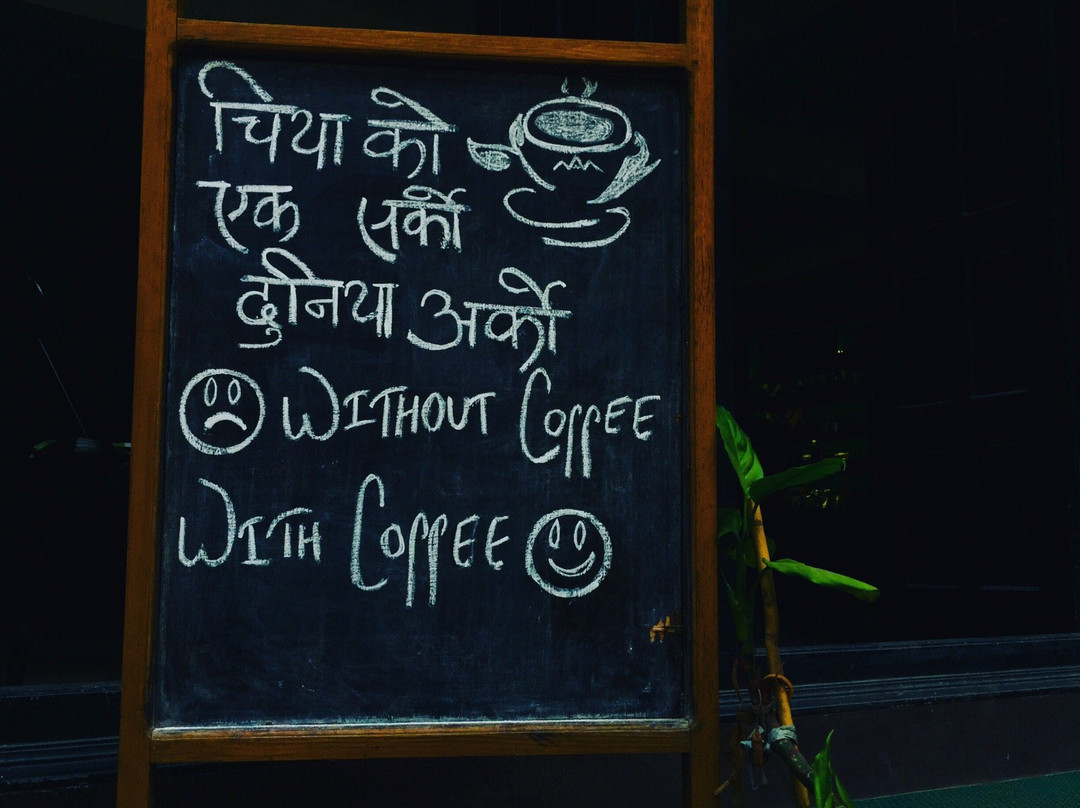 चिया को
एक सर्को
दुनिया अर्को
WITHOUT COFFEE
WITH COFFEE